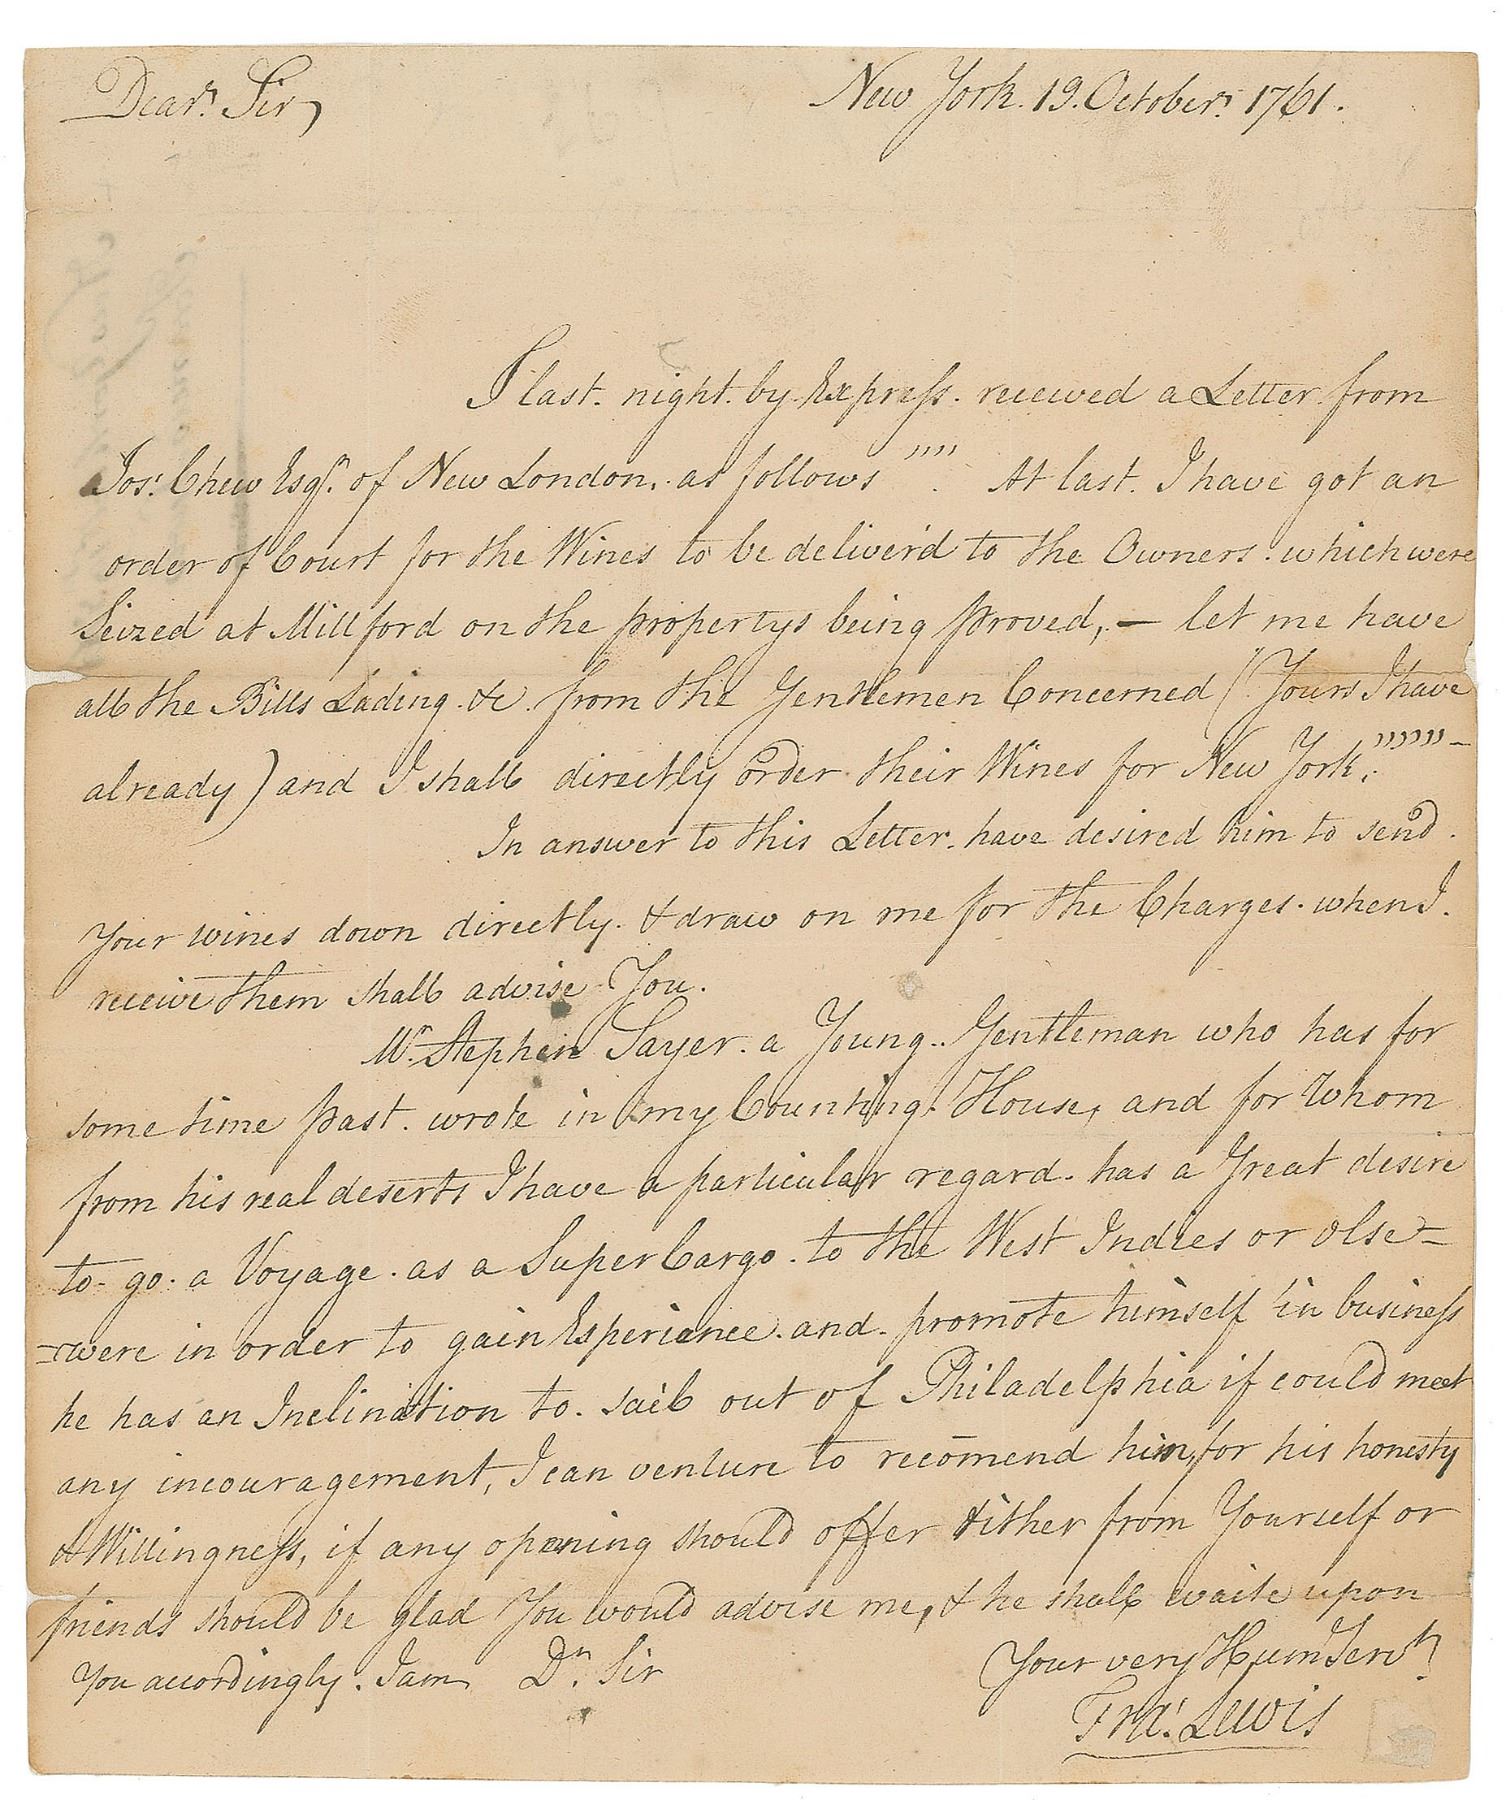 Dear. Sir,
New York. 19. October. 1761.
I last. night. by Express. received a Letter from
Jos. Chew Esqr. of New London. as follows """" At last. I have got an
order of Court for the Wines to be deliver'd to the Owners. which were
Seized at Millford on the propertys being proved, — let me have
all the Bills Lading. &c. from the Gentlemen Concerned (Yours I have
already) and I shall directly order their Wines for New York. """"""—
In answer to this Letter. have desired him to send.
Your wines down directly. & draw on me for the Charges. when I.
receive them shall advise You.
Mr. Stephen Sayer. a Young. Gentleman who has for
some time past. wrote in my Counting. House, and for Whom
from his real deserts I have a particular regard. has a Great desire
to. go. a Voyage. as a Super Cargo. to the West Indies or olse=
=were in order to gain Experience. and. promote himself in business
he has an Inclination to. sail out of Philadelphia if could meet
any incouragement, I can venture to recomend him, for his honesty
& Willingness, if any opening should offer either from Yourself or
friends should be glad You would advise me, & he shall waite upon
You accordingly. I am Dr. Sir
Your very Hum Servt.
Fra: Lewis